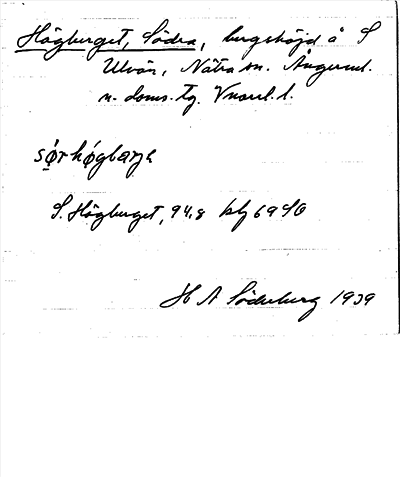 Högberget, Södra, bergshöjd å S
Ulvön, Nätra sn. Ångerml.
n. doms. tg. Vnorrl. l.
sø̣rhǿgbarjə
S. Högberget, 94,8 blg 69 SO
H A Söderberg 1939